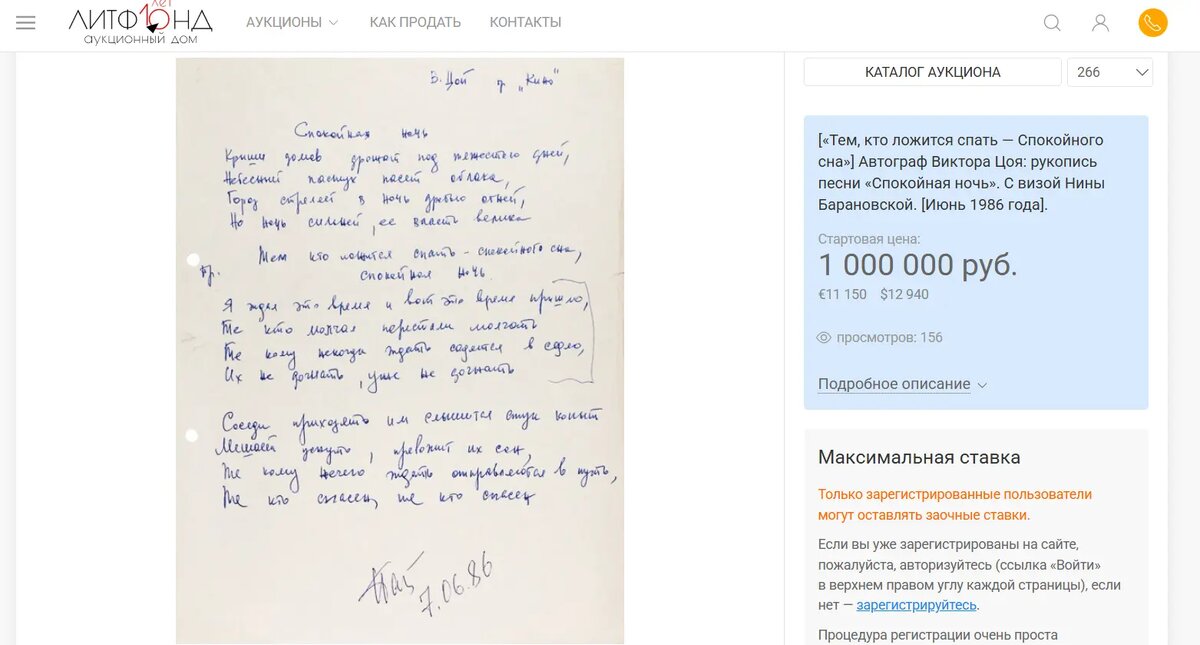 ЛЕТ
ЛИТФ10НД
аукционный дом
АУКЦИОНЫ
КАК ПРОДАТЬ
КОНТАКТЫ
В. Цой гр „Кино"
Спокойная ночь
Крыши домов дрожат под тяжестью дней,
Небесный пастух пасет облака,
Город стреляет в ночь дробью огней,
Но ночь сильней, ее власть велика
Тем кто ложится спать - спокойного сна,
Пр.
спокойная ночь.
Я ждал это время и вот это время пришло,
Те кто молчал перестали молчать
Те кому некогда ждать садятся в седло,
Их не догнать, уже не догнать
Соседи приходят им слышится стук копыт
Мешает уснуть, тревожит их сон,
Те кому нечего ждать отправляются в путь,
Те кто спасен, те кто спасен
7.06.86
КАТАЛОГ АУКЦИОНА
266
[«Тем, кто ложится спать — Спокойного
сна»] Автограф Виктора Цоя: рукопись
песни «Спокойная ночь». С визой Нины
Барановской. [Июнь 1986 года].
Стартовая цена:
1 000 000 руб.
€11 150 $12 940
просмотров: 156
Подробное описание
Максимальная ставка
Только зарегистрированные пользователи
могут оставлять заочные ставки.
Если вы уже зарегистрированы на сайте,
пожалуйста, авторизуйтесь (ссылка «Войти»
в верхнем правом углу каждой страницы), если
нет — зарегистрируйтесь.
Процедура регистрации очень проста